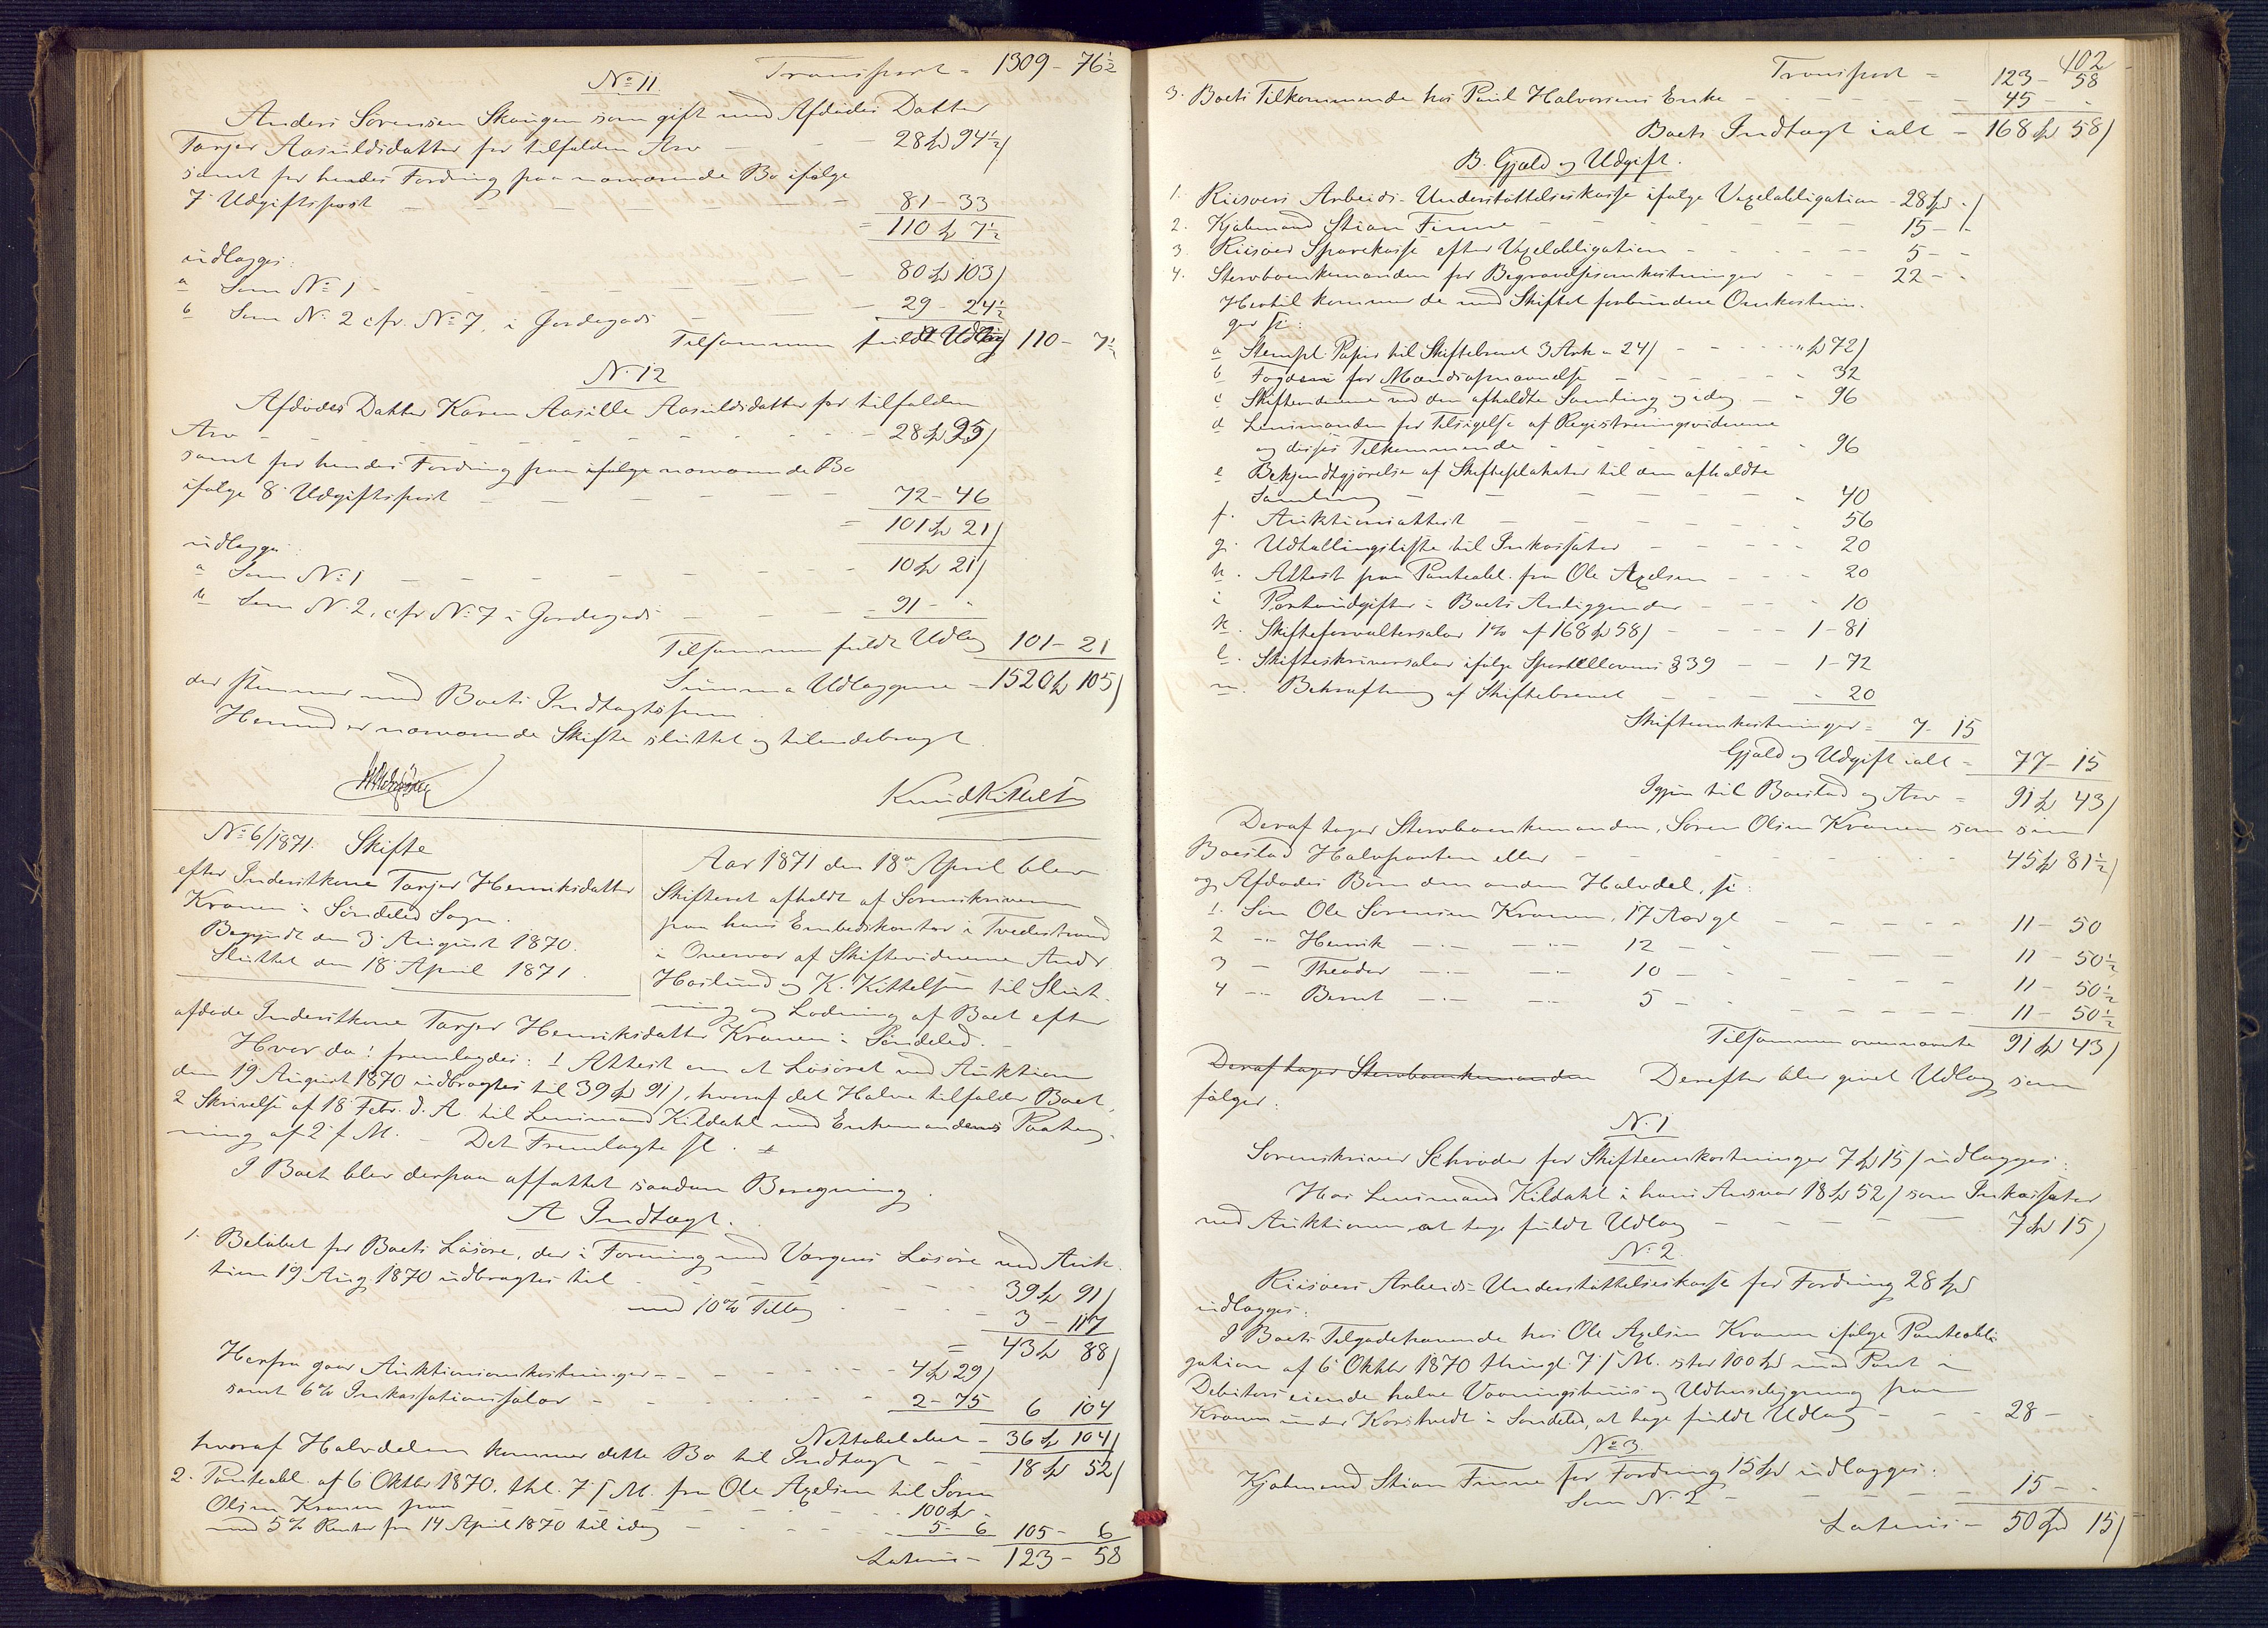 Transport = 1309 - 76½
No 11.
Anders Sörensen Skougen som gift med Afdödes Datter
Tarjer Aasuldsdatter for tilfalden Arv - - 28 Spd 94½ /
samt for hendes Fordring paa nærværende Bo ifölge
7. Udgiftspost - - - - - 81 - 33
= 110 Spd 7½
udlægges:
a Som No 1 - - - - - 80 Spd 103 /
b Som No 2 cfr. No 7, i Jordegods - 29 - 24½
Tilsammen fuldt Udlæg 110 - 7½
No 12
Afdödes Datter Karen Aasille Aasuldsdatter for tilfalden
Arv - - - - - - 28 Spd 95 /
samt for hendes Fordring paa ifølge nærværende Bo
ifölge 8. Udgiftspost - - - - 72 - 46
= 101 Spd 21 /
udlægges:
a Som No 1 - - - - - 10 Spd 21 /
b Som No 2, cfr No 7 i Jordegods - - 91 - "
Tilsammen fuldt Udlæg 101 - 21
Summa Udlæggene = 1520 Spd 105 /
der stemmer med Boets Indtægtssum.
Hermed er nærværende Skifte sluttet og tilendebragt.
Knud Kittelsen
No 6/1871. Skifte
efter Inderstkone Tarjer Henriksdatter
Kranen i Söndeled Sogn.
Begyndt den 3. August 1870.
Sluttet den 18 April 1871.
Aar 1871 den 18de April blev
Skifteret afholdt af Sorenskriveren
paa hans Embedskontor i Tvedestrand
i Overvær af Skiftevidnerne Andr.
Hoslund og K. Kittelsen til Slut-
ning og Lodning af Boet efter
afdöde Inderstkone Tarjer Henriksdatter Kranen i Söndeled.
Hvor da: fremlagdes: 1 Attest om at Lösöret ved Auktion
den 19 August 1870 udbragtes til 39 Spd 91 /, hvoraf det Halve tilfalder Boet,
2 Skrivelse af 18 Febr. d. A. til Lensmand Kildahl med Enkemandens Paateg-
ning af 2 f. M. - Det Fremlagte fl.
I Boet blev derpaa affattet saadan Beregning.
A Indtægt.
1. Belöbet for Boets Lösöre, der i Forening med Værgens Lösöre ved Auk-
tion 19 Aug. 1870 udbragtes til - - - - 39 Spd 91 /
med 10% Tillæg - - - 3 - 117
= 43 Spd 88 /
Herfra gaar Auktionsomkostninger - - - 4 Spd 29 /
samt 6% Inkassationssalær - - - 2 - 75 6 104
Nettobeløbet - 36 Spd 104 /
hvoraf Halvdelen kommer dette Bo til Indtægt - - 18 Spd 52 /
2. Panteobl. af 6 Oktbr 1870. thl. 7 s. M. fra Ole Axelsen til Sören
Olsen Kranen paa - - - 100 Spd -
med 5% Renter fra 14 April 1870 til idag - - 5 - 6 105 - 6
Lateris - 123 - 58
402
Transport = 123 - 58
3. Boets Tilkommende hos Poul Halvorsens Enke - - - 45 - "
Boets Indtægt ialt - 168 Spd 58 /
B. Gjæld og Udgift.
1. Riisøers Arbeids-Understøttelseskasse ifølge Vexelobligation - 28 Spd " /
2. Kjöbmand Stian Finne - - - - 15 - "
3. Riisøer Sparekasse efter Vexelobligation - - - 5 - "
4. Stervboenkemanden for Begravelsesomkostninger - - - 22 - "
Hertil kommer de med Skiftet forbundne Omkostnin-
ger sk:
a Stempl. Papir til Skiftebrevet 3 Ark a 24 / - - - " Spd 72 /
b Fogden for Mandsopnævnelse - - - " 32
c Skiftevidnerne ved den afholdte Samling og idag - " 96
d Lensmanden for Tilsigelse af Registreringsvidnerne
og disses Tilkommende - - - " 96
e Bekjendtgjörelse af Skifteplakater til den afholdte
Samling - - - - " 40
f. Auktionsattest - - - - 56
g. Udtallingsliste til Inkassator - - - 20
h. Attest paa Panteobl. fra Ole Axelsen - - - 20
i Portoudgifter i Boets Anliggender - - - 10
k. Skifteforvaltersalær 1% af 168 Spd 58 / - - - 1 - 81
l. Skifteskriversalær ifølge Sportellovens § 39 - - 1 - 72
m. Bekræftning af Skiftebrevet - - - " 20
Skifteomkostninger = 7 - 15
Gjæld og Udgift ialt = 77 - 15
Igjen til Boeslod og Arv = 91 Spd 43 /
Deraf tager Stervboenkemanden, Sören Olsen Kranen som sin
Boeslod Halvparten eller - - - - 45 Spd 81½ /
og Afdödes Börn den anden Halvdel, sk:
1. Sön Ole Sörensen Kranen, 17 Aar gl - - - 11 - 50
2 -"- Henrik -"- -"- 12 - - - 11 - 50½
3 - Theodor -"- -"- 10 - - - 11 - 50½
4 -"- Bernt -"- -"- 5 - - - 11 - 50½
Tilsammen ovennævnte 91 Spd 43 /
Deraf tager Stervboenkemanden Derefter blev givet Udlæg som
følger:
No 1
Sorenskriver Schröder for Skifteomkostninger 7 Spd 15 / udlægges:
Hos Lensmand Kildahl i hans Ansvar 18 Spd 52 / som Inkassator
ved Auktionen at tage fuldt Udlæg - - - - 7 Spd 15 /
No 2.
Riisøers Arbeids-Understøttelseskasse for Fordring 28 Spd
udlægges:
I Boets Tilgodehavende hos Ole Axelsen Kranen ifølge Panteobli-
gation af 6 Oktbr 1870 thingl. 7 s. M. stor 100 Spd med Pant i
Debitors eiende halve Vaaningshuus og Udhusbygning paa
Kranen under Korstvedt i Söndeled, at tage fuldt Udlæg - - - 28 - "
No 3.
Kjöbmand Stian Finne for Fordring 15 Spd udlægges:
Som No 2 - - - - 15 - "
Lateris - 50 Spd 15 /